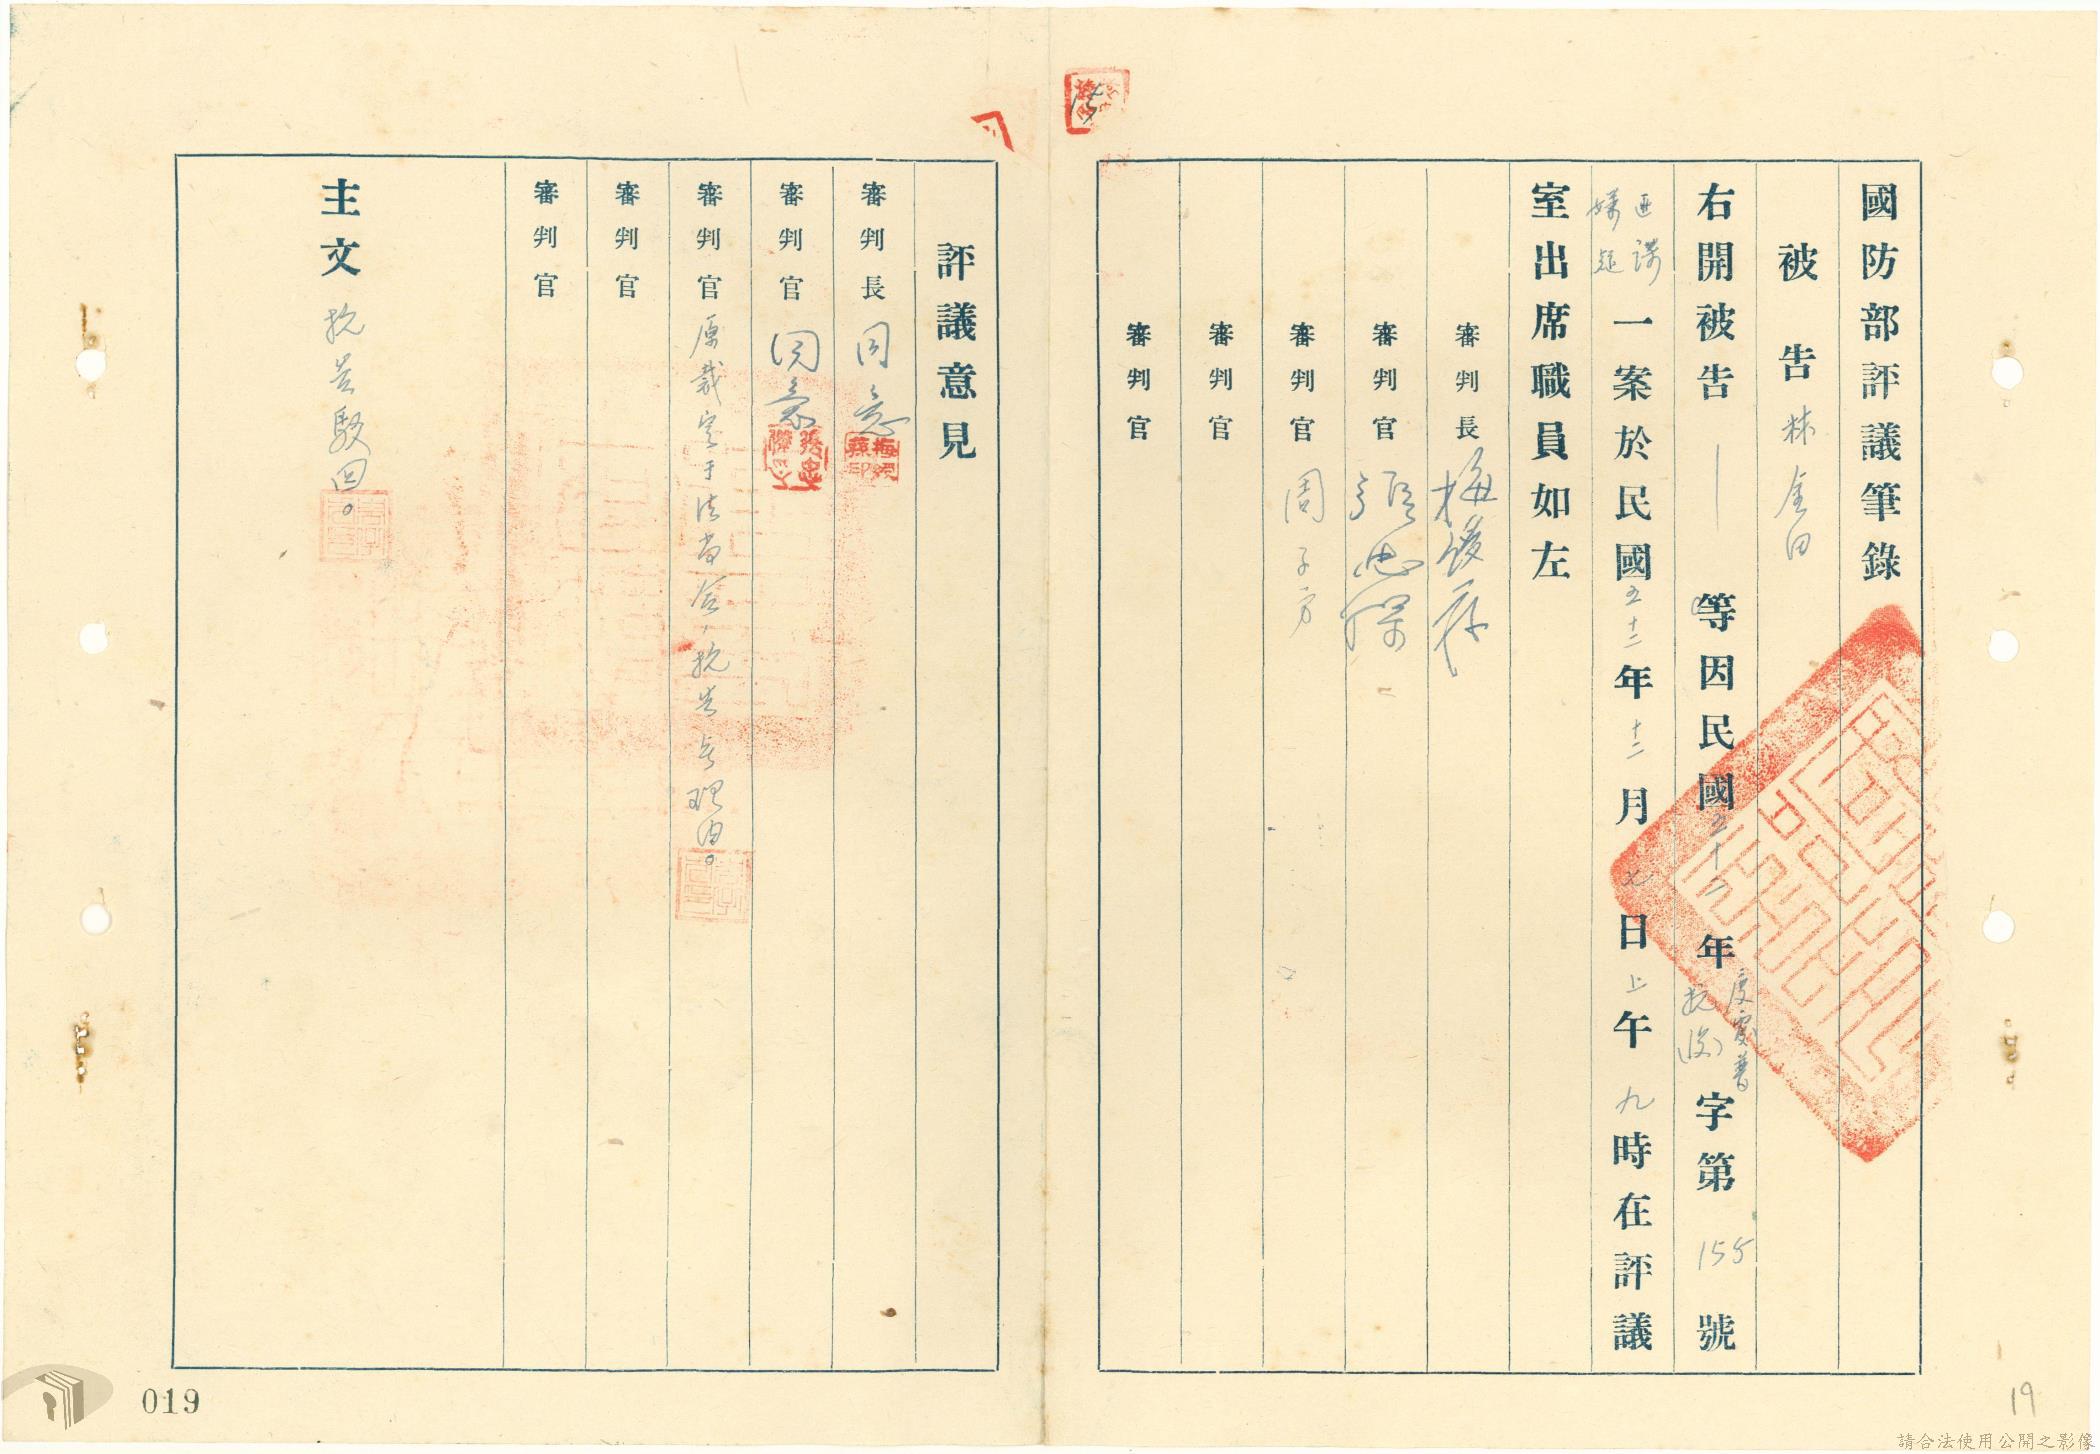 國防部評議筆錄
被告 林金田
右開被告 等因民國五十二年度覆普抗(復)字第155號
匪諜嫌疑一案於民國五十二年十二月七日上午九時在評議
室出席職員如左
審判長 梅綬蓀
審判官 張忠
審判官 周子方
審判官
審判官
評議意見
審判長 同意
審判官 同意
審判官 原裁定于法尚合,抗告無理由。
審判官
審判官
主文 抗告駁回。
019
19
請合法使用公開之影像